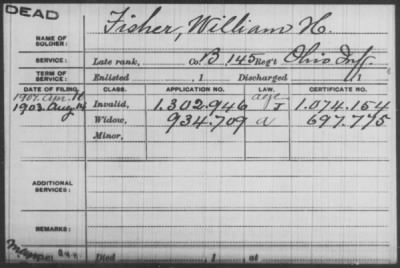 DEAD
Fisher, William H.
NAME OF SOLDIER:
SERVICE: Late rank, Co. B 145 Reg't Ohio Inf.
TERM OF SERVICE: Enlisted , 1 Discharged , 1
DATE OF FILING. CLASS. APPLICATION NO. LAW. CERTIFICATE NO.
age
1907. Apr. Invalid, 1.302.946 J 1.074.154
1903. Aug. Widow, 934.709 a 697.775
Minor,
ADDITIONAL SERVICES:
REMARKS:
Died , 1 at